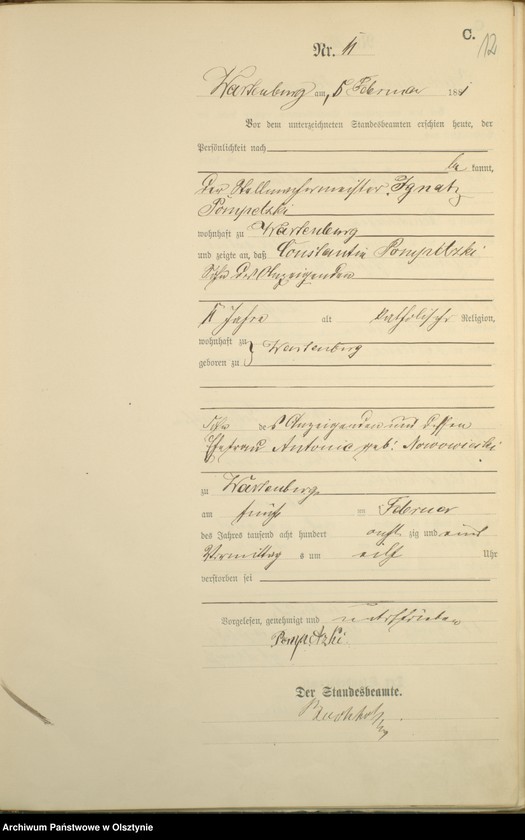 C.
12
Nr. 11
Wartenburg am 5 Februar 1881
Vor dem unterzeichneten Standesbeamten erschien heute, der
Persönlichkeit nach
be kannt,
der Stellmachermeister Ignatz
Pompetzki
wohnhaft zu Wartenburg
und zeigte an, daß Constantin Pompetzki
Sohn des Anzeigenden
Jahre alt katholischer Religion,
wohnhaft zu
geboren zu } Wartenburg
Sohn des Anzeigenden und dessen
Ehefrau Antonie geb: Nowowieski
zu Wartenburg
am fünf im Februar
des Jahres tausend acht hundert acht zig und eins
Vormittag s um elf Uhr
verstorben sei
Vorgelesen, genehmigt und unterschrieben
Pompetzki
Der Standesbeamte.
Buchholz
Archiwum Państwowe w Olsztynie